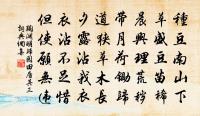 種豆南山下
草盛豆苗稀
晨興理荒穢
帶月荷鋤歸
道狹草木長
夕露沾我衣
衣沾不足惜
但使願無違
陶淵明歸園田居其三
詞典網集